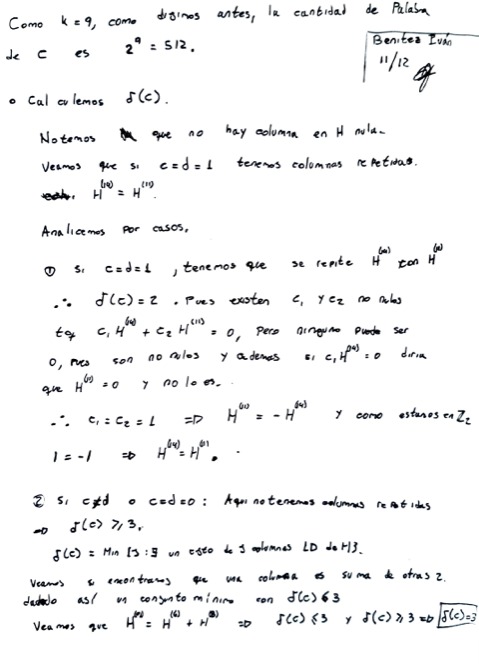 Como k = 9, como dijimos antes, la cantidad de Palabra
de C es 2^9 = 512.
Benitez Iván
11/12
• Calculemos δ(C).
Notemos que no hay columna en H nula.
Veamos que si c=d=1 tenemos columnas repetidas.
H^(14) = H^(11).
Analicemos por casos.
① Si c=d=1, tenemos que se repite H^(14) con H^(11)
∴ δ(C)=2. Pues existen c₁ y c₂ no nulos
tq c₁H^(14) + c₂H^(11) = 0, pero ninguno puede ser
0, pues son no nulos y ademas si c₁H^(14) = 0 diria
que H^(11) = 0 y no lo es.
∴ c₁ = c₂ = 1 ⇒ H^(11) = -H^(14) y como estamos en ℤ₂
1 = -1 ⇒ H^(14) = H^(11).
② Si c≠d o c=d=0: Aqui no tenemos columnas repetidas
⇒ δ(C) ≥ 3.
δ(C) = Min {J : ∃ un cjto de J columnas LD de H}.
Veamos si encontramos que una columna es suma de otras 2.
dando así un conjunto mínimo con δ(C) ≤ 3
Veamos que = H^(6) + ⇒ δ(C) ≤ 3 y δ(C) ≥ 3 ⇒ δ(C)=3